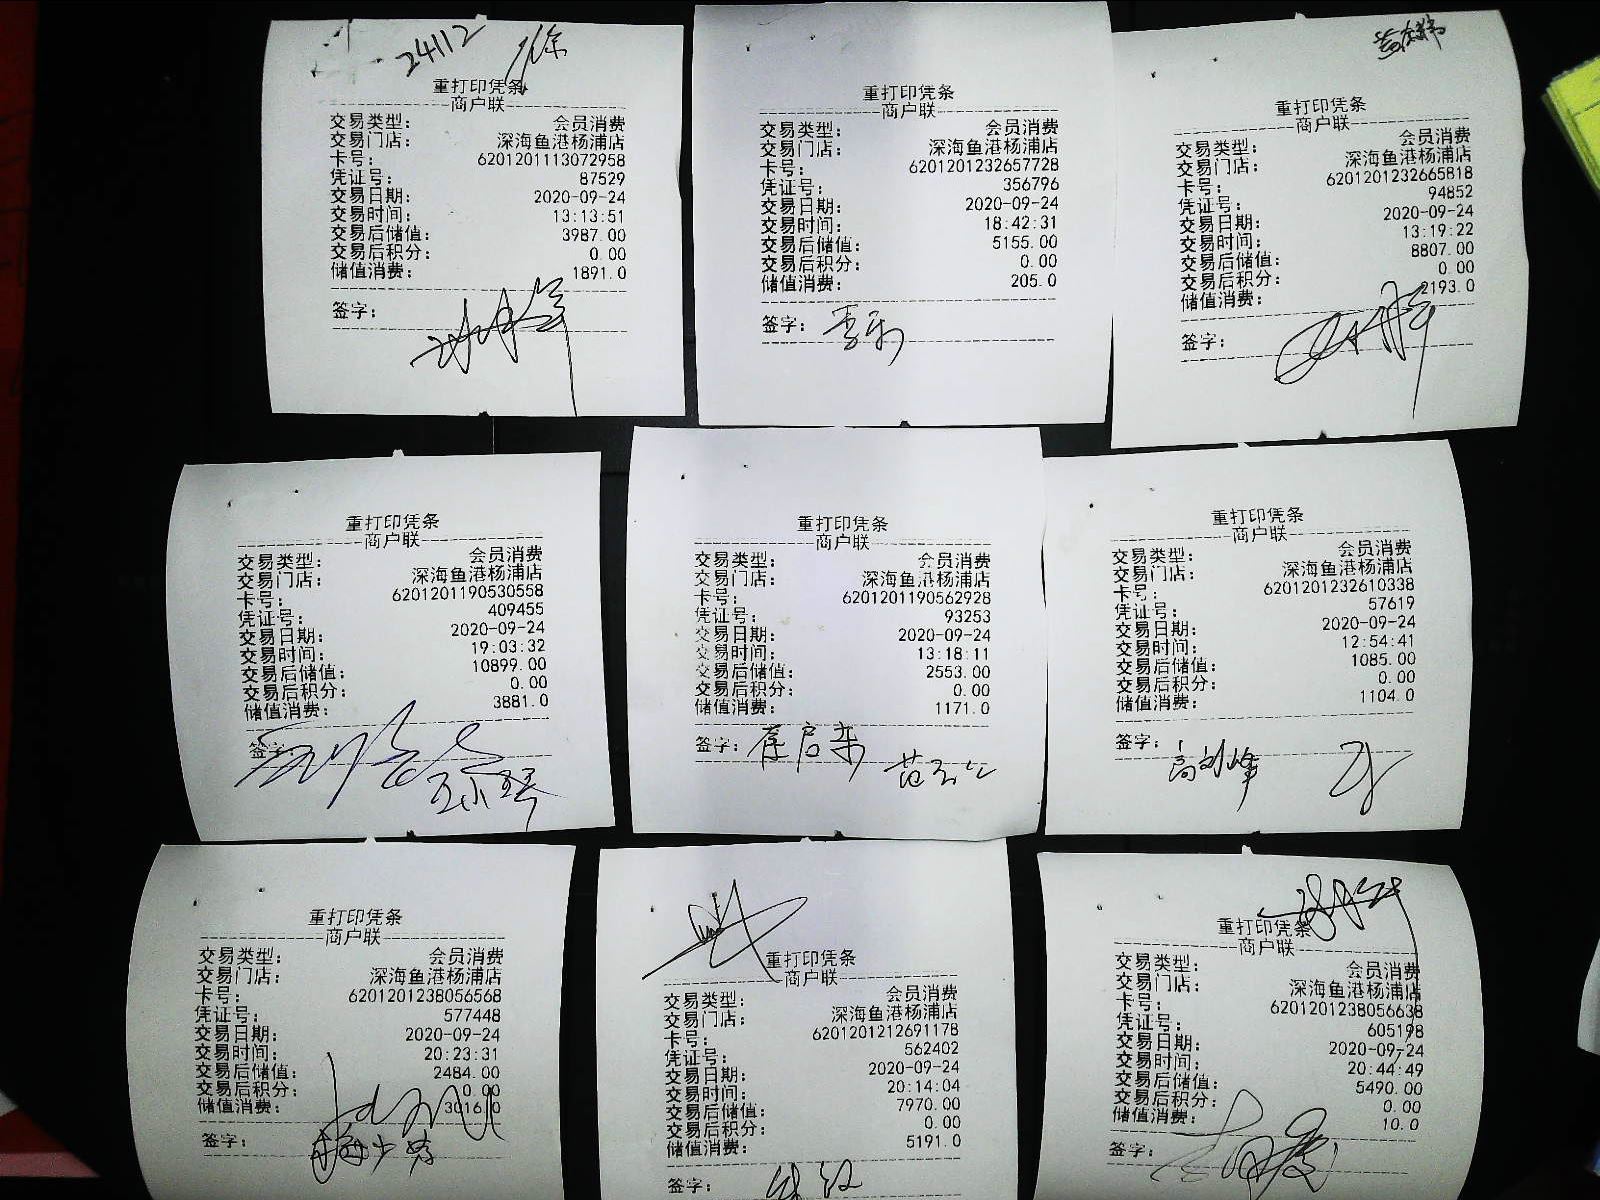 24112
重打印凭条
商户联
交易类型： 会员消费
交易门店： 深海鱼港杨浦店
卡号： 6201201113072958
凭证号： 87529
交易日期： 2020-09-24
交易时间： 13:13:51
交易后储值： 3987.00
交易后积分： 0.00
储值消费： 1891.0
签字：
重打印凭条
商户联
交易类型： 会员消费
交易门店： 深海鱼港杨浦店
卡号： 6201201232657728
凭证号： 356796
交易日期： 2020-09-24
交易时间： 18:42:31
交易后储值： 5155.00
交易后积分： 0.00
储值消费： 205.0
签字：
重打印凭条
商户联
交易类型： 会员消费
交易门店： 深海鱼港杨浦店
卡号： 6201201232665818
凭证号： 94852
交易日期： 2020-09-24
交易时间： 13:19:22
交易后储值： 8807.00
交易后积分： 0.00
储值消费： 2193.0
签字：
重打印凭条
商户联
交易类型： 会员消费
交易门店： 深海鱼港杨浦店
卡号： 6201201190530558
凭证号： 409455
交易日期： 2020-09-24
交易时间： 19:03:32
交易后储值： 10899.00
交易后积分： 0.00
储值消费： 3881.0
签字：
重打印凭条
商户联
交易类型： 会员消费
交易门店： 深海鱼港杨浦店
卡号： 6201201190562928
凭证号： 93253
交易日期： 2020-09-24
交易时间： 13:18:11
交易后储值： 2553.00
交易后积分： 0.00
储值消费： 1171.0
签字：
重打印凭条
商户联
交易类型： 会员消费
交易门店： 深海鱼港杨浦店
卡号： 6201201232610338
凭证号： 57619
交易日期： 2020-09-24
交易时间： 12:54:41
交易后储值： 1085.00
交易后积分： 0.00
储值消费： 1104.0
签字：
重打印凭条
商户联
交易类型： 会员消费
交易门店： 深海鱼港杨浦店
卡号： 6201201238056568
凭证号： 577448
交易日期： 2020-09-24
交易时间： 20:23:31
交易后储值： 2484.00
交易后积分： 0.00
储值消费： 3016.0
签字：
重打印凭条
商户联
交易类型： 会员消费
交易门店： 深海鱼港杨浦店
卡号： 6201201212691178
凭证号： 562402
交易日期： 2020-09-24
交易时间： 20:14:04
交易后储值： 7970.00
交易后积分： 0.00
储值消费： 5191.0
签字：
重打印凭条
商户联
交易类型： 会员消费
交易门店： 深海鱼港杨浦店
卡号： 6201201238056638
凭证号： 605198
交易日期： 2020-09-24
交易时间： 20:44:49
交易后储值： 5490.00
交易后积分： 0.00
储值消费： 10.0
签字：